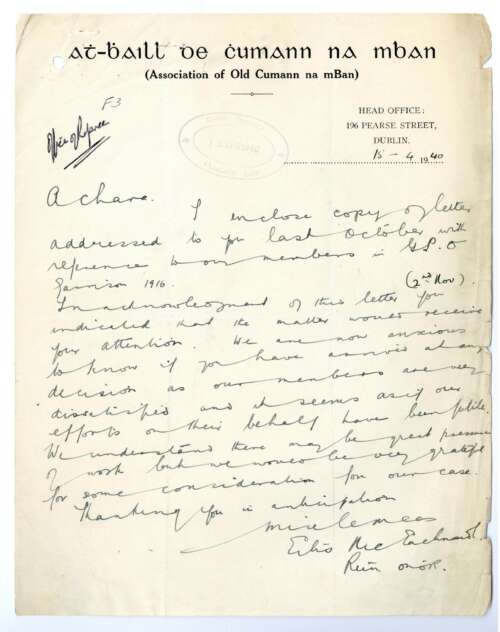 at-ḃaill de ċumann na mban
(Association of Old Cumann na mBan)
F3
HEAD OFFICE:
196 PEARSE STREET,
DUBLIN.
15 - 4 1940
A chara.
I enclose copy of letter
addressed to you last October with
reference to our members in G.P.O
Garrison 1916.
(2nd Nov).
In acknowledgment of this letter you
indicated that the matter would receive
your attention. We are now anxious
to know if you have arrived at any
decision as our members are very
dissatisfied and it seems as if our
efforts on their behalf have been futile.
We understand there may be great pressure
of work but we would be very grateful
for some consideration for our case.
Thanking you in anticipation
mise le meas
Eilís
Rún